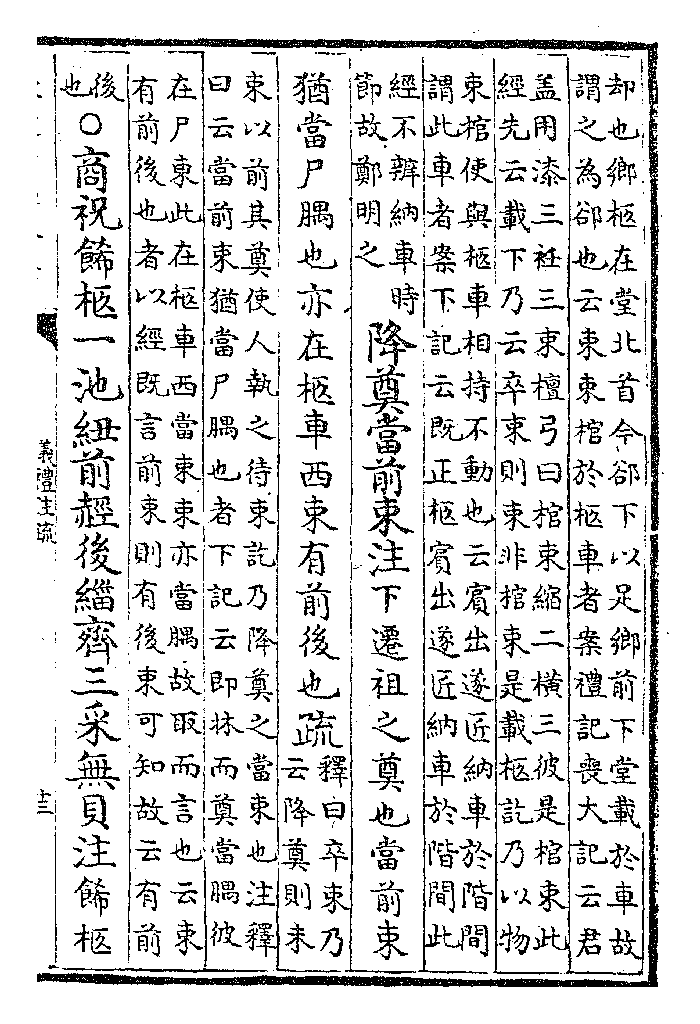 却也鄉柩在堂北首今郤下以足鄉前下堂載於車故
謂之為郤也云束束棺於柩車者案禮記喪大記云君
盖用漆三衽三束檀弓曰棺束縮二横三彼是棺束此
經先云載下乃云卒束則束非棺束是載柩訖乃以物
束棺使與柩車相持不動也云賓出遂匠納車於階間
謂此車者案下記云既正柩賓出遂匠納車於階間此
經不辨納車時
節故鄭明之
降奠當前束注下遷祖之奠也當前束
猶當尸腢也亦在柩車西束有前後也疏
釋曰卒束乃
云降奠則未
束以前其奠使人執之待束訖乃降奠之當束也注釋
曰云當前束猶當尸腢也者下記云即牀而奠當腢彼
在尸東此在柩車西當束束亦當腢故取而言也云束
有前後也者以經既言前束則有後束可知故云有前
後
也
○商祝飾柩一池紐前䞓後緇齊三采無貝注飾柩
義禮注疏
十三